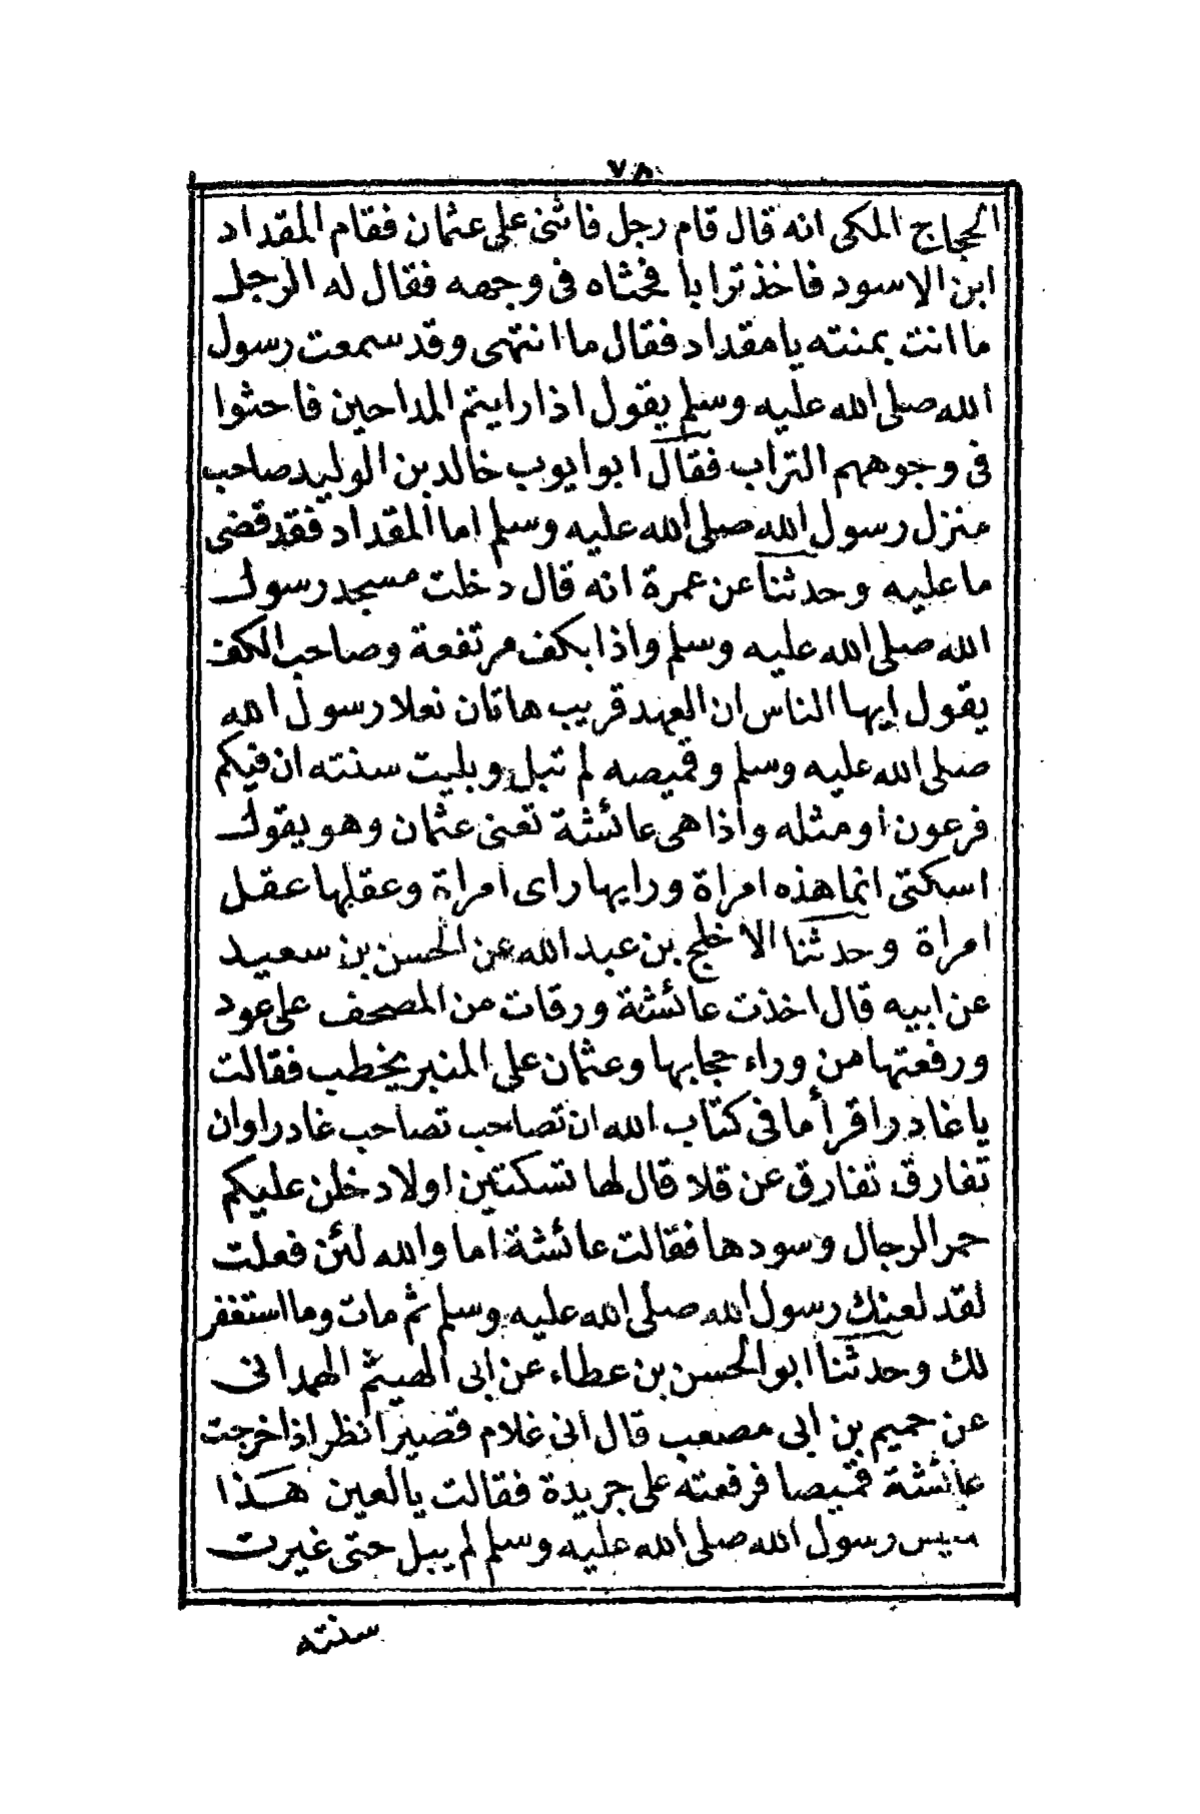 ٧٨
الحجاج المكى انه قال قام رجل فاثنى على عثمان فقام المقداد
ابن الاسود فاخذ ترابا فحثاه فى وجهه فقال له الرجل
ما انت بمنته يا مقداد فقال ما انتهى وقد سمعت رسول
الله صلى الله عليه وسلم يقول اذا رايتم المداحين فاحثوا
فى وجوههم التراب فقال ابو ايوب خالد بن الوليد صاحب
منزل رسول الله صلى الله عليه وسلم اما المقداد فقد قضى
ما عليه وحدثنا عن عمرة انه قال دخلت مسجد رسول
الله صلى الله عليه وسلم واذا بكف مرتفعة وصاحب الكف
يقول ايها الناس ان العهد قريب هاتان نعلا رسول الله
صلى الله عليه وسلم وقميصه لم تبل وبليت سنته ان فيكم
فرعون او مثله واذا هى عائشة تعنى عثمان وهو يقول
اسكتى انما هذه امراة ورايها راى امراة وعقلها عقل
امراة وحدثنا الاخلج بن عبد الله عن الحسن بن سعيد
عن ابيه قال اخذت عائشة ورقات من المصحف على عود
ورفعتها من وراء حجابها وعثمان على المنبر يخطب فقالت
يا غادر اقرأ ما فى كتاب الله ان تصاحب تصاحب غادرا وان
تفارق تفارق عن قلا قال لها تسكتين او لادخلن عليكم
حمر الرجال وسودها فقالت عائشة اما والله لئن فعلت
لقد لعنك رسول الله صلى الله عليه وسلم ثم مات وما استغفر
لك وحدثنا ابو الحسن بن عطاء عن ابى الهيثم الهمدانى
عن حميم بن ابى مصعب قال انى غلام قصير انظر اذا خرجت
عائشة قميصا فرفعته على جريدة فقالت يا لعين هذا
رسول الله صلى الله عليه وسلم لم يبل حتى غيرت
سنته